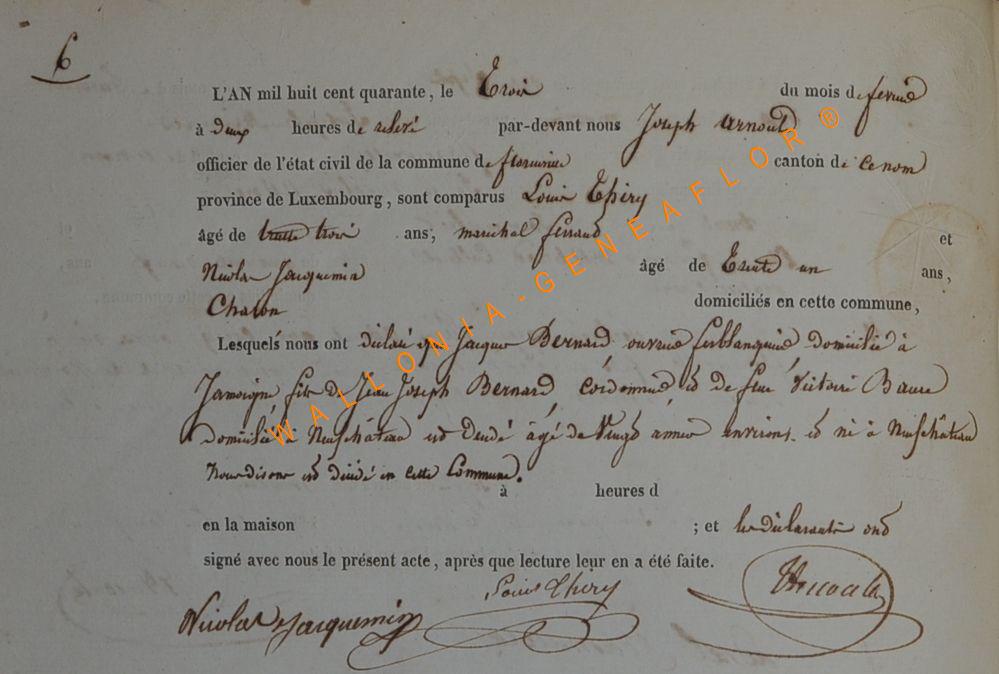 6
L'AN mil huit cent quarante, le Trois du mois de fevrié
à deux heures de relevé par-devant nous Joseph Arnould
officier de l'état civil de la commune de florenville canton de
province de Luxembourg, sont comparus Louis Thiry
âgé de trente trois ans, marichal ferrand et
Nicolas Jacquemin âgé de Trente un ans,
Charon domiciliés en cette commune,
Lesquels nous ont déclaré que Jacques Bernard ouvrié ferblanquié domicilié à
Jamoigne fils de Jean Joseph Bernard cordonnié et de feue Victoire
domicilié à Neufchâteau est décédé âgé de Vingt années environs et né à Neufchâteau
Nous disons est décédé en cette Commune.
à heures d
en la maison ; et les déclarants ont
signé avec nous le présent acte, après que lecture leur en a été faite.
Nicolas Jacquemin Louis Thiry
WALLONIA-GENEAFLOR ®